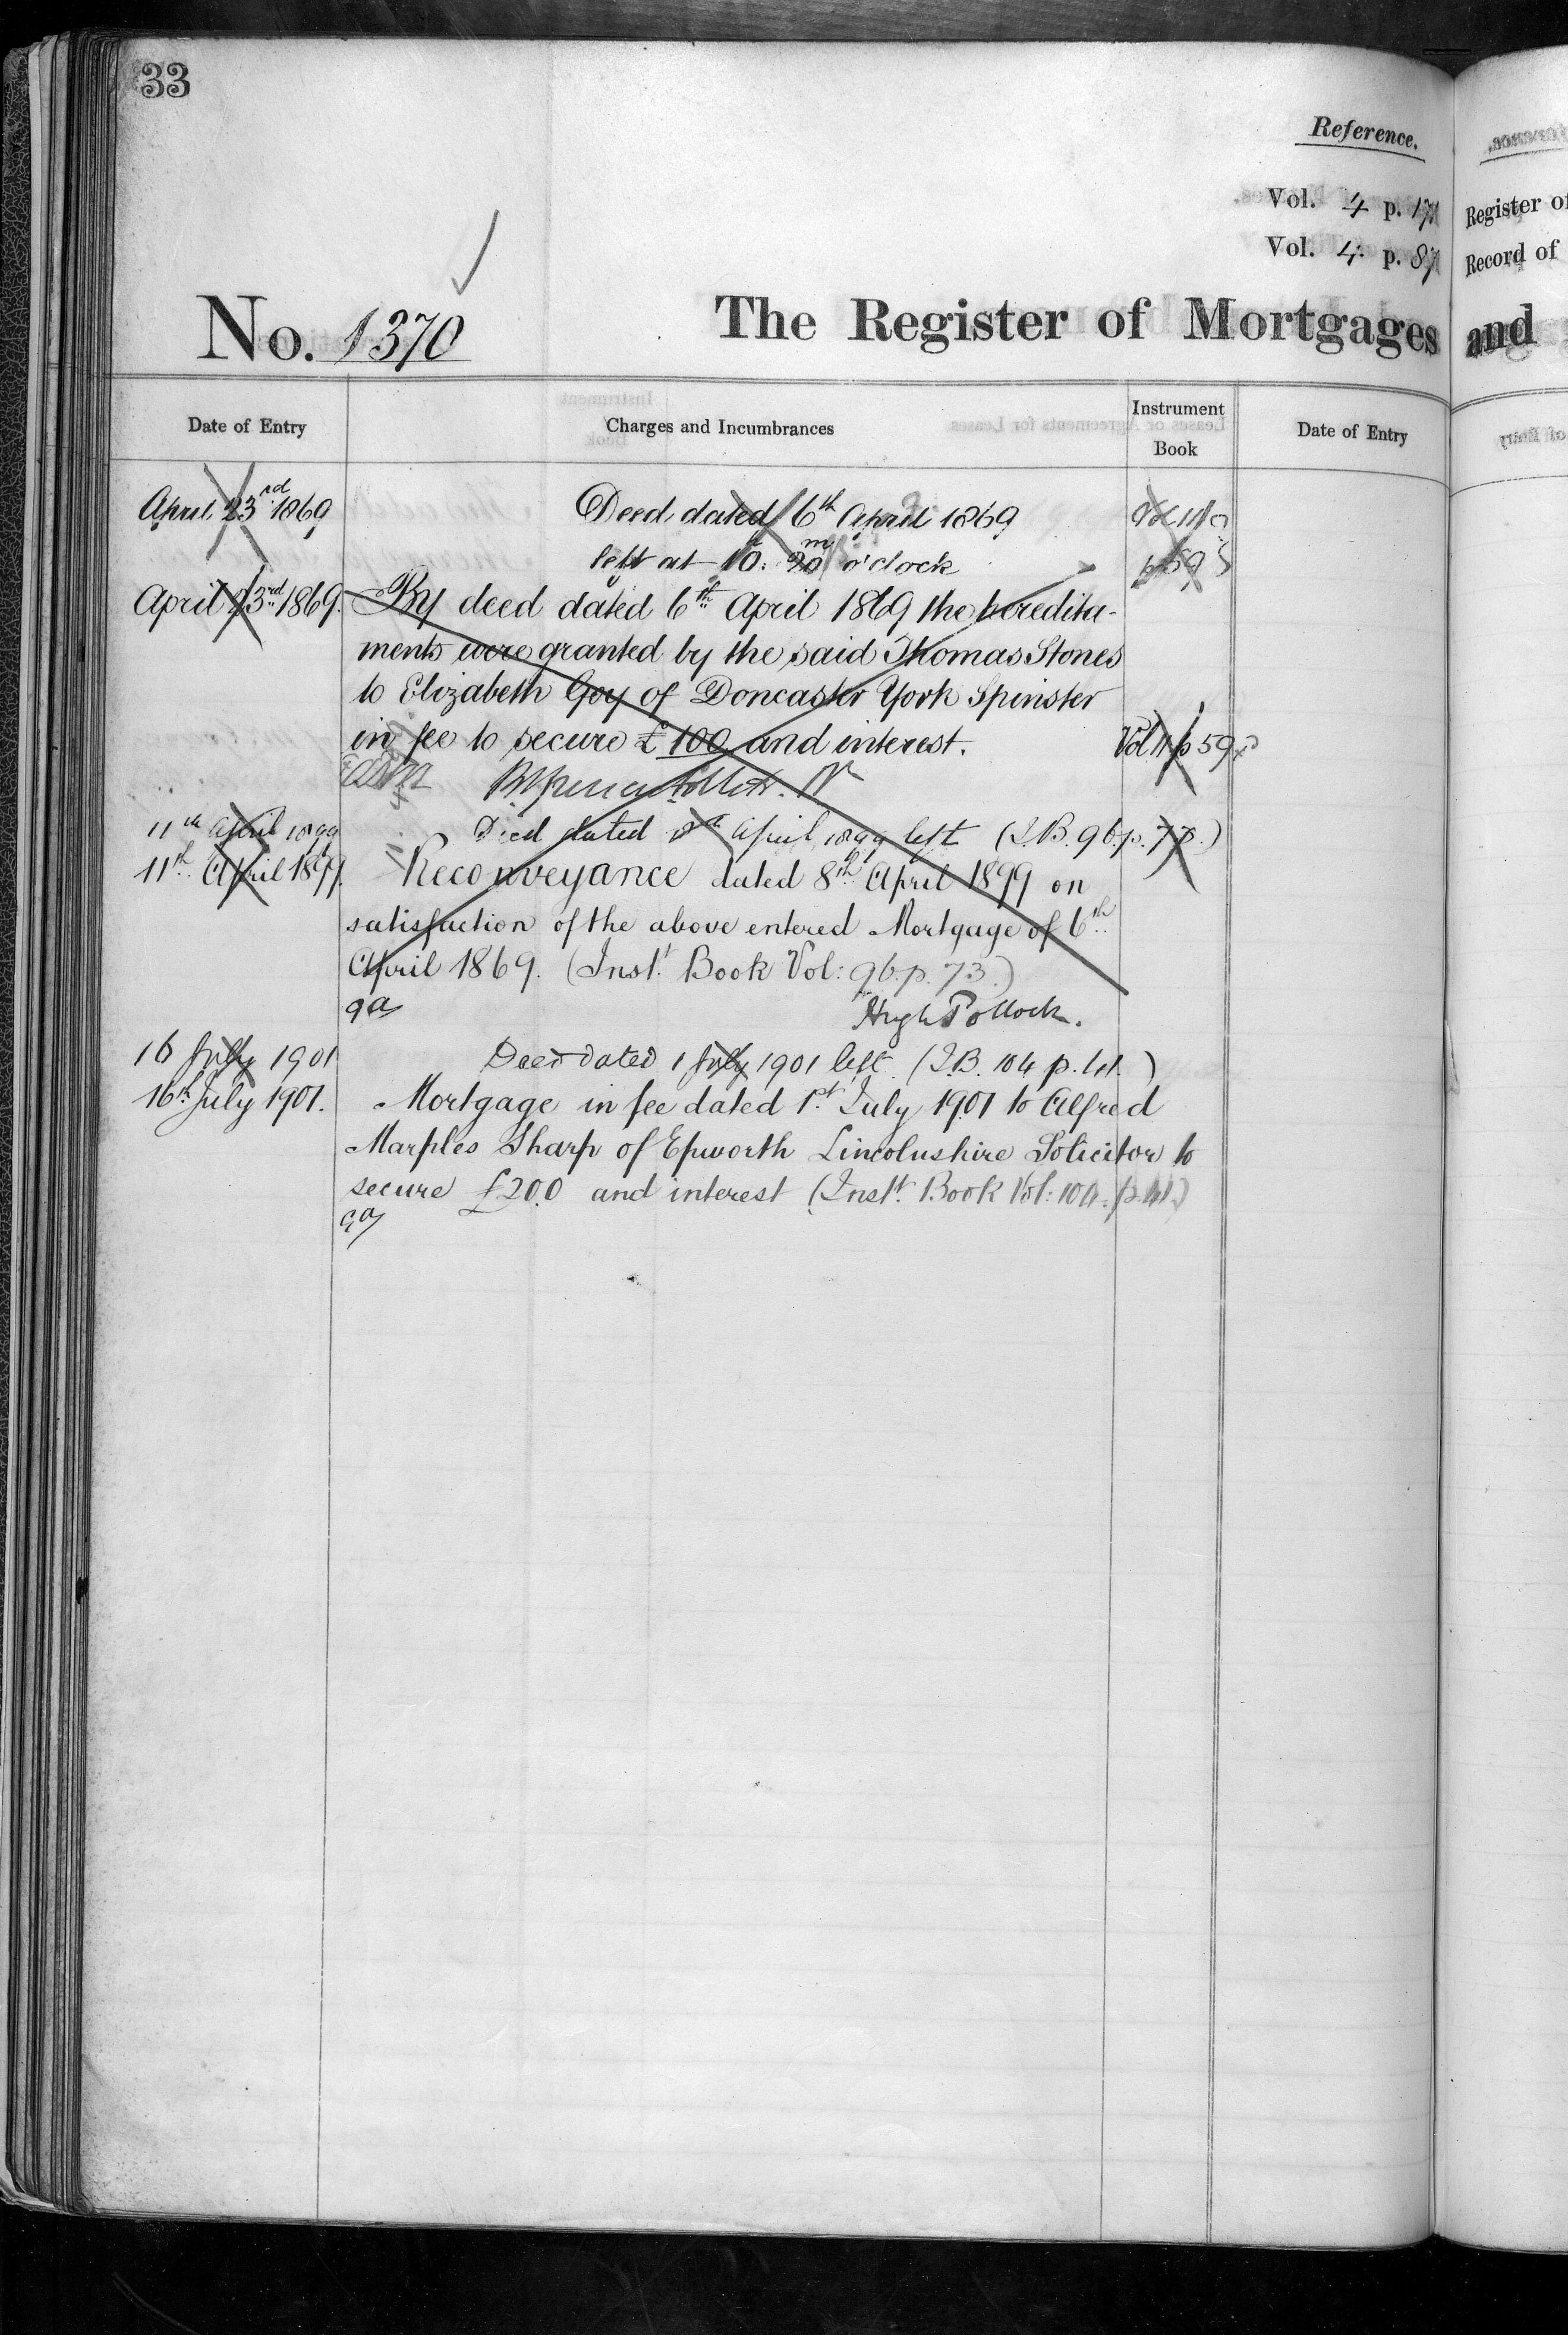 33
Reference.
Vol. 4 p. 171
Vol. 4 p. 87
Register of
Record of
No. 1370
The Register of Mortgages and
Date of Entry
Charges and Incumbrances
Instrument Book
Date of Entry
April 23rd 1869
Deed dated 6th April 1869
Vol 11
left at 10. 20m o'clock
p 59
April 23rd 1869.
By deed dated 6th April 1869 the heredita-
ments were granted by the said Thomas Stones
to Elizabeth Goy of Doncaster York Spinster
in fee to secure £100 and interest.
Vol 11 p 59
11th April 1899
Deed dated 8th April 1899 left (I.B. 96. p. 73.)
11th April 1899.
Reconveyance dated 8th April 1899 on
satisfaction of the above entered Mortgage of 6th
April 1869. (Inst. Book Vol: 96. p. 73.)
Hugh Pollock.
16 July 1901
Deed dated 1 July 1901 left. (I.B. 104 p. 41.)
16th July 1901.
Mortgage in fee dated 1st July 1901 to Alfred
Marples Sharp of Epworth Lincolnshire Solicitor to
secure £200 and interest (Inst. Book Vol: 104. p. 41.)